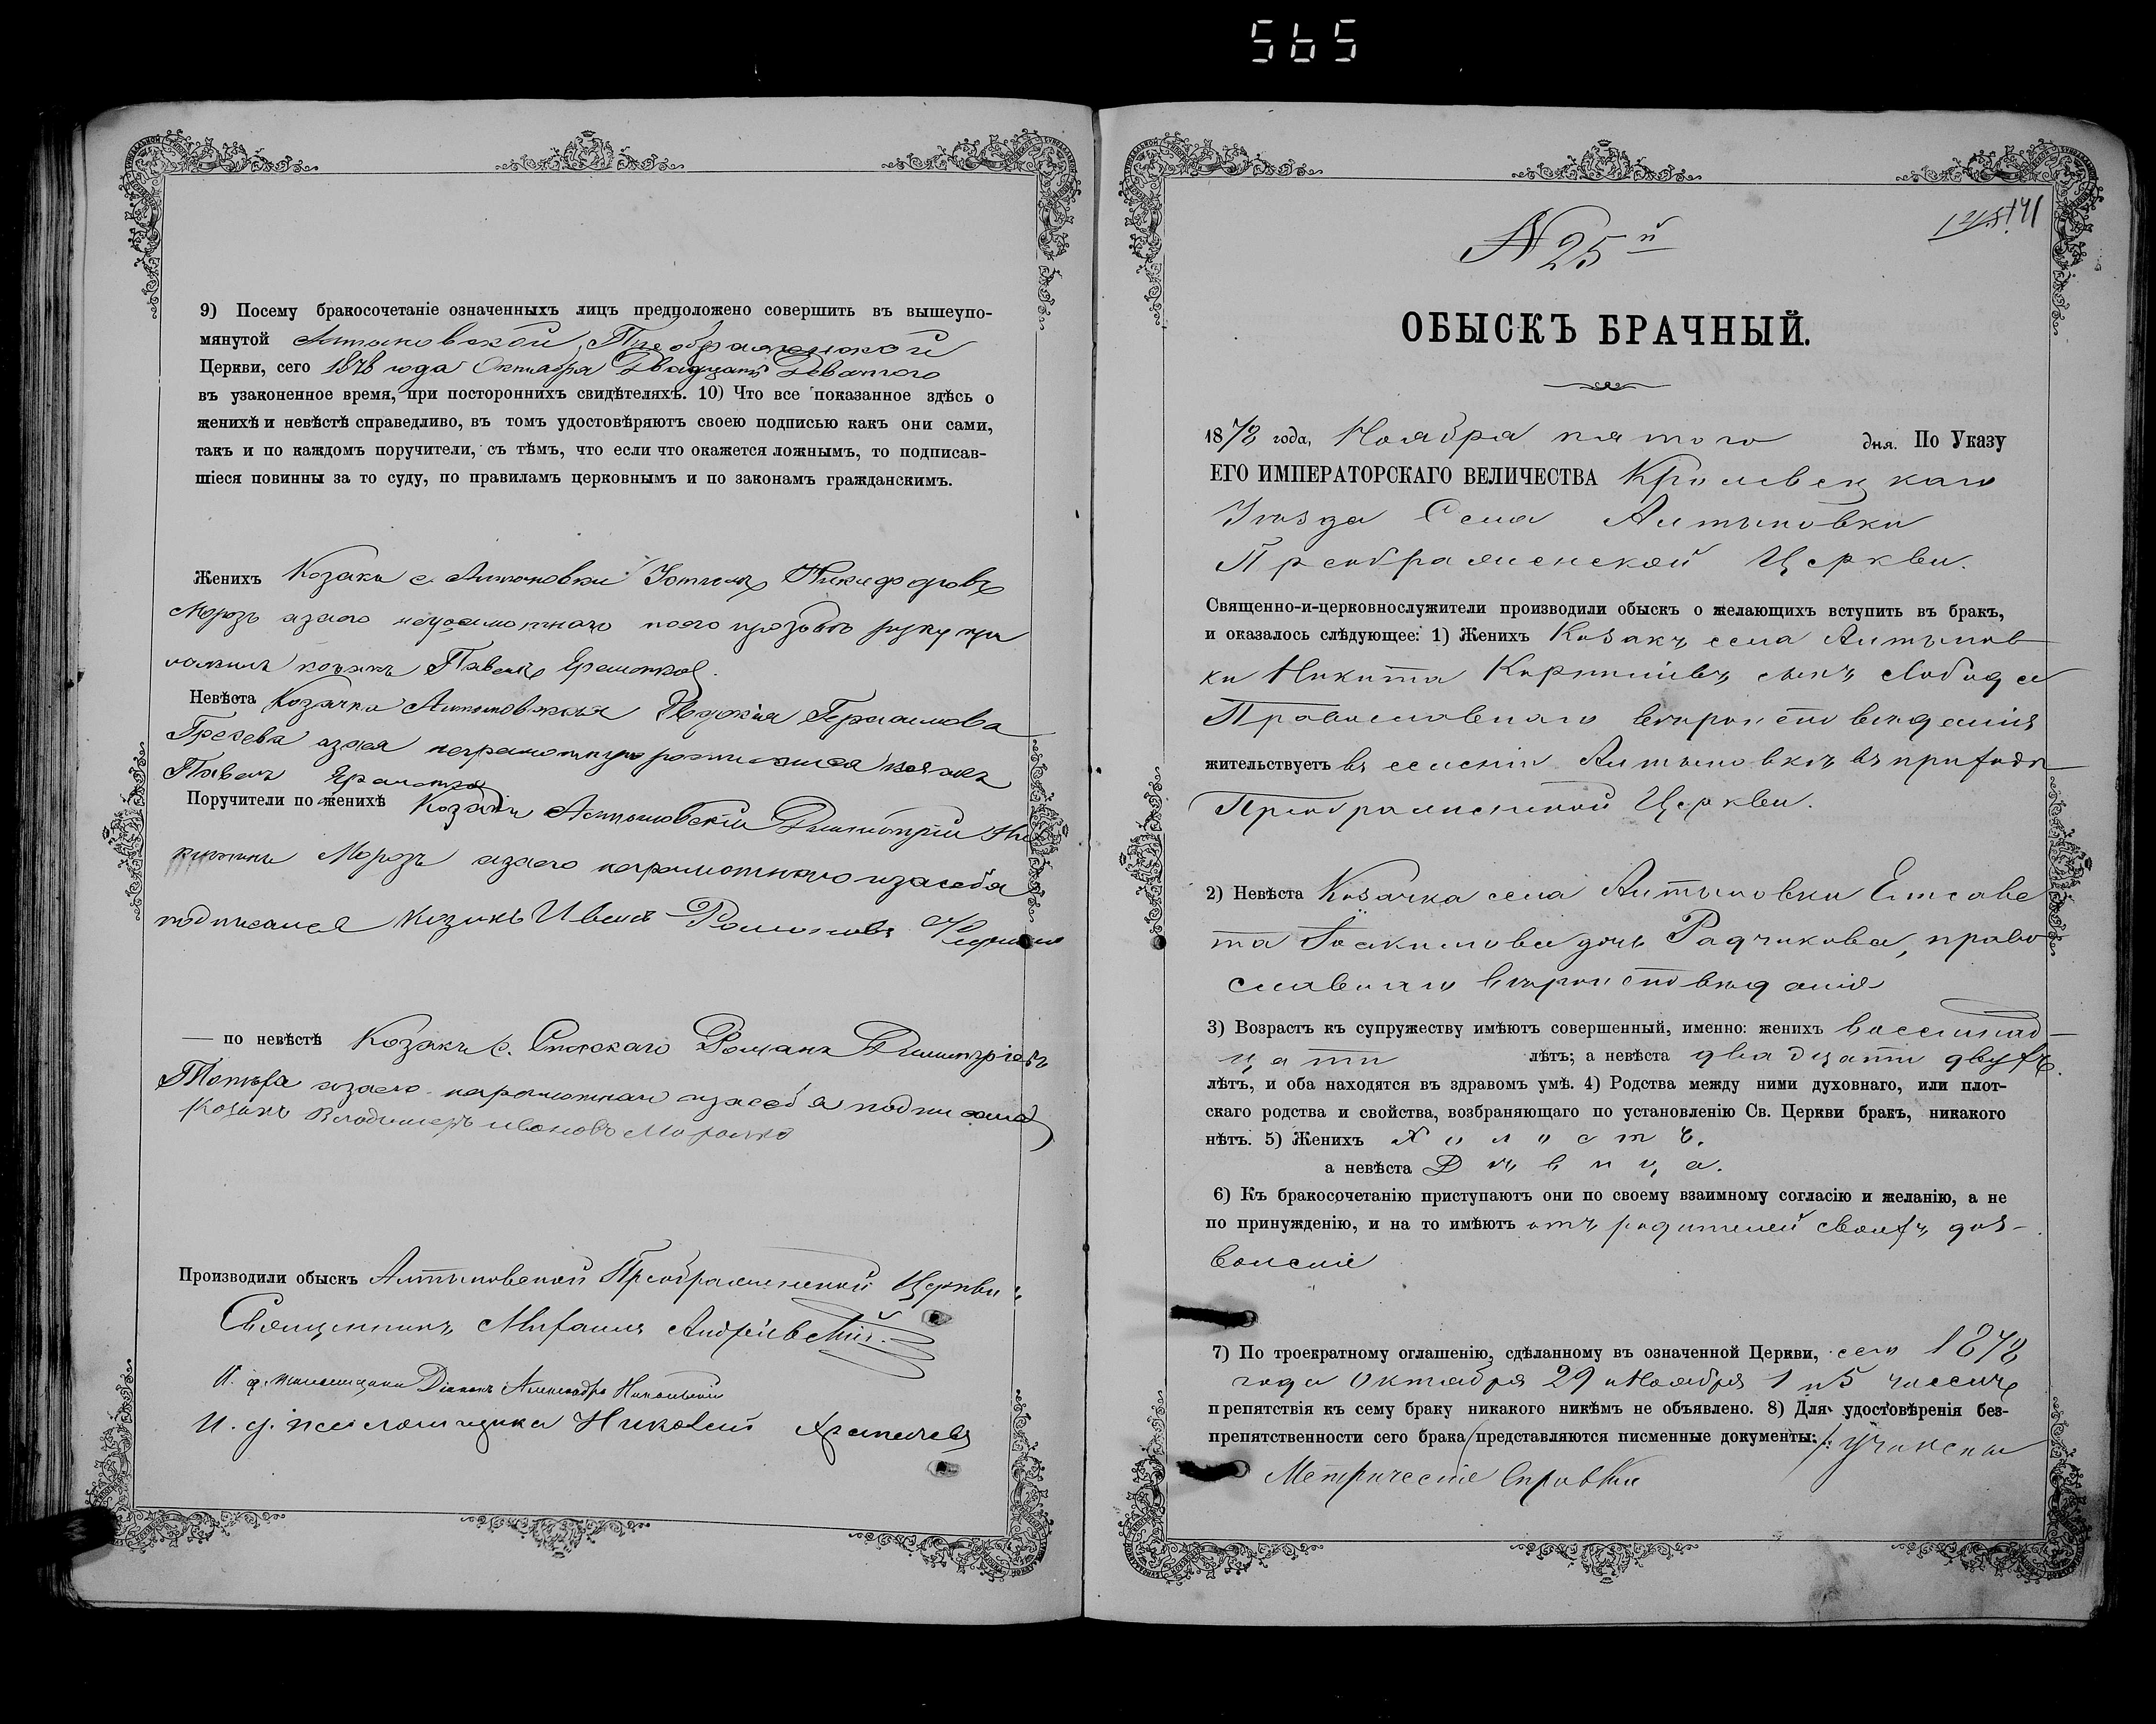 565
9) Посему бракосочетаніе означенныхъ лицъ предположено совершить въ вышеупо-
мянутой Алтыновской Преображенской
Церкви, сего 1878 года Октября Двадцать Девятого
въ узаконенное время, при постороннихъ свидѣтеляхъ. 10) Что все показанное здѣсь о
женихѣ и невѣстѣ справедливо, въ томъ удостовѣряютъ своею подписью какъ они сами,
такъ и по каждомъ поручители, съ тѣмъ, что если что окажется ложнымъ, то подписав-
шіеся повинны за то суду, по правиламъ церковнымъ и по законамъ гражданскимъ.
Женихъ Козакъ с. Алтыновки Никифоровъ
Морозъ а за него неграмотнаго его прозьбѣ руку при
ложилъ козакъ Павелъ
Невѣста Козачка Алтыновская Евдокія Герасимова
а за нея неграмотную росписался козакъ
Павелъ
Поручители по женихѣ Козакъ Алтыновскій Димитрій Ни
китинъ Морозъ а за его неграмотного и за себя
подписался Козакъ Иванъ Романовъ
— по невѣстѣ Козакъ с. Спаскаго Романъ Димитріевъ
а за его неграмотнаго и за себя подписался
Козакъ Владимеръ Ивановъ
Производили обыскъ Алтыновской Преображенской Церкви:
Священникъ Михаилъ Андріевскій.
И. д. псаломщика Діаконъ Александръ Никольскій
И. д. псаломщика Николай
141
N 25й
ОБЫСКЪ БРАЧНЫЙ.
1878 года, Ноября пятого дня. По Указу
ЕГО ИМПЕРАТОРСКАГО ВЕЛИЧЕСТВА Кролевецкаго
Уѣзда Села Алтыновки
Преображенской Церкви.
Священно-и-церковнослужители производили обыскъ о желающихъ вступить въ бракъ,
и оказалось слѣдующее: 1) Женихъ Козакъ села Алтынов
ки Никита сынъ Лобода
Православнаго вѣроисповѣданія
жительствуетъ въ селеніи Алтыновкѣ въ приходѣ
Преображенской Церкви.
2) Невѣста Козачка села Алтыновки Елисаве
та Іоакимова дочь Радчикова, право
славнаго вѣроисповѣданія
3) Возрастъ къ супружеству имѣютъ совершенный, именно: женихъ восемнад-
цати лѣтъ; а невѣста двадцати двухъ.
лѣтъ, и оба находятся въ здравомъ умѣ. 4) Родства между ними духовнаго, или плот-
скаго родства и свойства, возбраняющаго по установленію Св. Церкви бракъ, никакого
нѣтъ. 5) Женихъ Холостъ.
а невѣста Дѣвица.
6) Къ бракосочетанію приступаютъ они по своему взаимному согласію и желанію, а не
по принужденію, и на то имѣютъ отъ родителей своихъ доз-
воленіе
7) По троекратному оглашенію, сдѣланному въ означенной Церкви, сего 1878
года Октября 29 и Ноября 1 и 5 чиселъ
препятствія къ сему браку никакого никѣмъ не объявлено. 8) Для удостовѣренія без-
препятственности сего брака представляются писменные документы: учинены
Метрическіе Справки